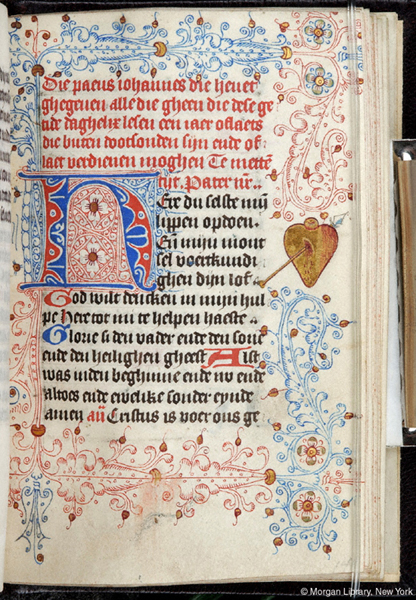 Die paeus iohannes die heuet
ghegeuen alle die gheen die dese ge
tide daghelix lesen een iaer oflaets
die buten dootsonden sijn ende of
laet verdienen moghen Te metten
tijt. Pater nr̄.
HEre du selste mijn
lippen opdoen.
En mijn mont
sel voertkundi
ghen dijn lof.
God wilt dencken in mijn hul
pe Here tot mi te helpen haeste
Glorie si den vader ende den sone
ende den heilighen gheest Alst
was inden beghinne ende nv ende
altoes ende ewelike sonder eynde
amen an̄ Cristus is voer ons ge
© Morgan Library, New York